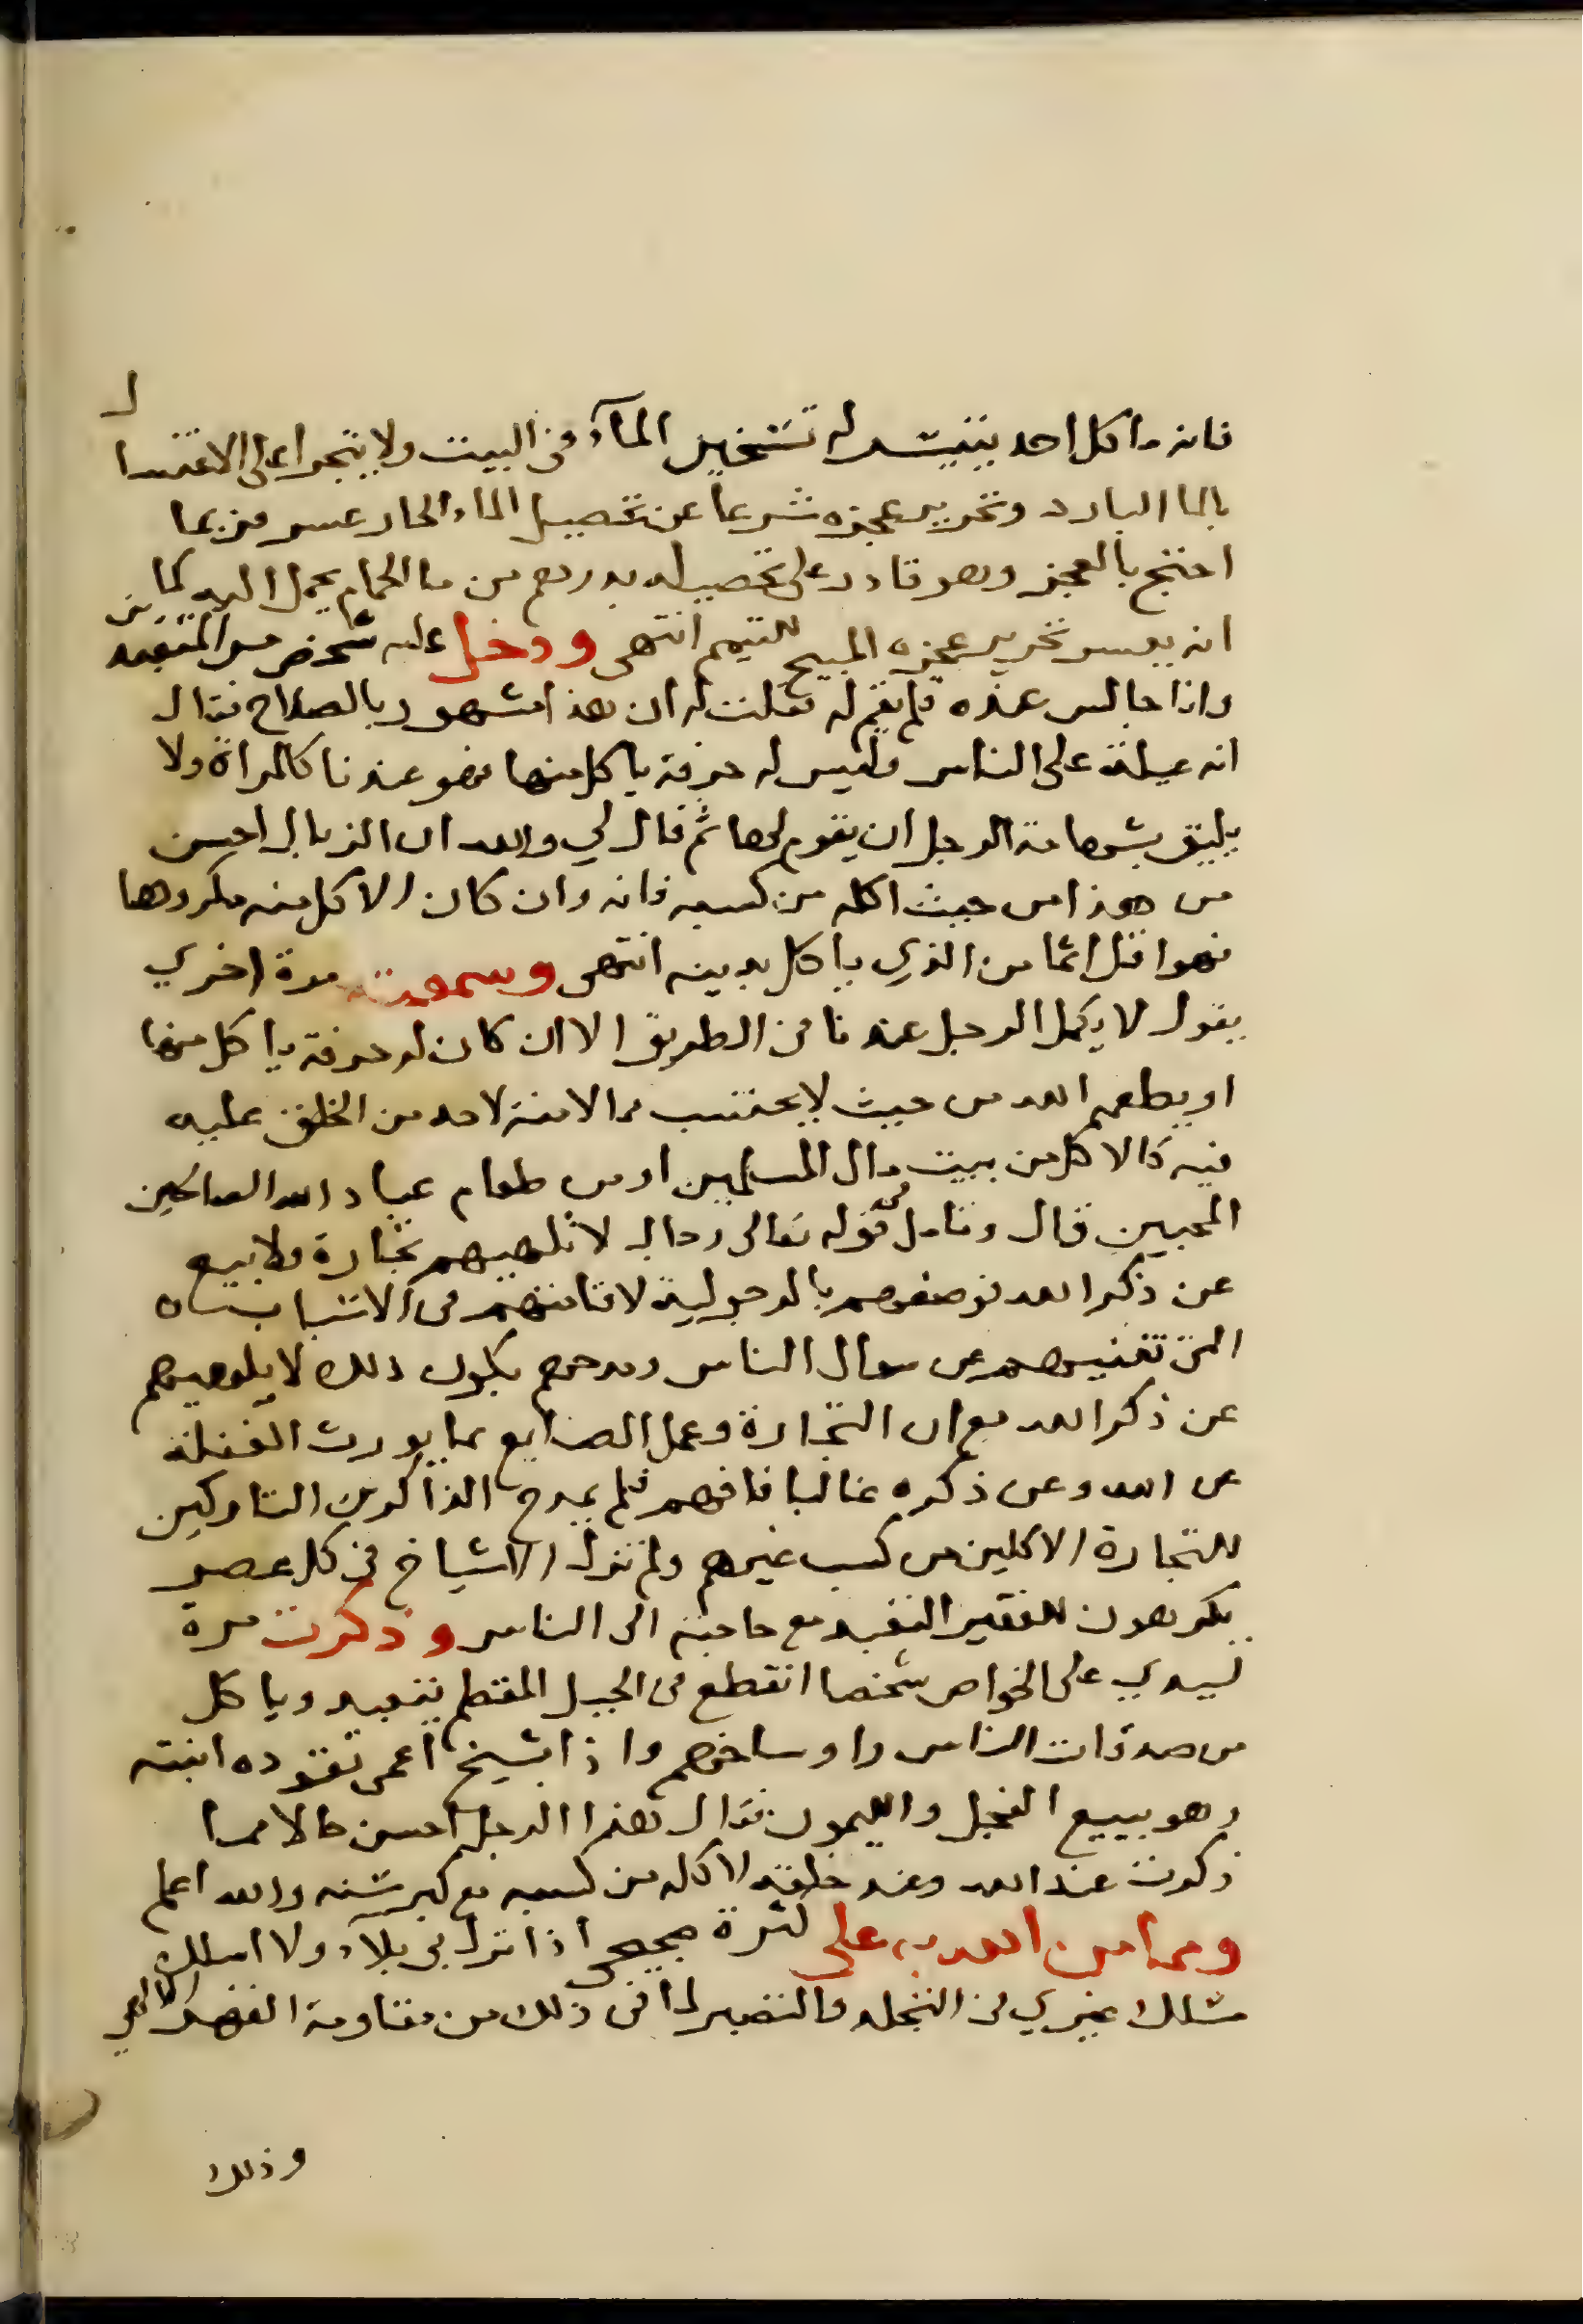 فانه ما كل احد يتيسر له تسخين المآء في البيت ولا يتجرا على الاغتسال
بالما البارد وتحرير عجزه شرعا عن تحصيل الماء الحار عسر فربما
احتج بالعجز وهو قادر على تحصيله بدرهم من ما الحمام يحمل اليه كما
انه يعسر تحرير عجزه المبيح للتيمم انتهى ودخل عليه شخص من المتعبدين
وانا جالس عنده فلم يقم له فقلت له ان هذا مشهور بالصلاح فقال
انه عيلة على الناس وليس له حرفة ياكل منها فهو عندنا كالمراة ولا
يليق بشهامة الرجل ان يقوم لها ثم قال لي والله ان الزبال احسن
من هذا من حيث اكله من كسبه فانه وان كان الاكل منه مكروها
فهو اقل اثما من الذي ياكل بدينه انتهى وسمعته مرة اخري
يقول لا يكمل الرجل عندنا في الطريق الا ان كان له حرفة ياكل منها
او يطعمه الله من حيث لا يحتسب مما لا منة لاحد من الخلق عليه
فيه كالاكل من بيت مال المسلمين او من طعام عباد الله الصالحين
المحبين قال وتامل في قوله تعالى رجال لا تلهيهم تجارة ولا بيع
عن ذكر الله فوصفهم بالرجولية لاقامتهم في الاسباب
التي تغنيهم عن سوال الناس ومدحهم بكون ذلك لا يلهيهم
عن ذكر الله مع ان التجارة وعمل الصنايع مما يورث الغفلة
عن الله وعن ذكره غالبا فافهم فلم يمدح الذاكرين التاركين
للتجارة الاكلين من كسب غيرهم ولم تزل الاشياخ في كل عصر
يكرهون للفقير التعبد مع حاجته الى الناس وذكرت مرة
لسيدي على الخواص شخصا انقطع في الجبل المقطم يتعبد وياكل
من صدقات الناس واوساخهم واذا بشيخ اعمى تقوده ابنته
وهو يبيع الفجل والليمون فقال هذا الرجل احسن حالا مما
ذكرت عند الله وعند خلقه لاكله من كسبه مع كبر سنه والله اعلم
ومما من الله به على كثرة ضجيجى اذا نزل بي بلآء ولا اسلك
مسلك غيري في التجلد والتصبر لما في ذلك من مقاومة القهر الالهي
وذلك